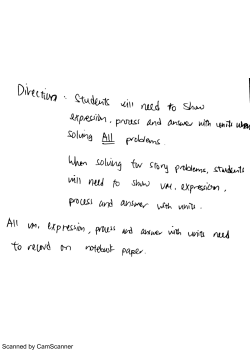 Direction : Students will need to show
expression, process and answer with units when
solving All problems.
When solving for story problems, students
will need to show um, expression,
process and answer with units.
All um, expression, process and answer with units need
to record on notebook paper.
Scanned by CamScanner